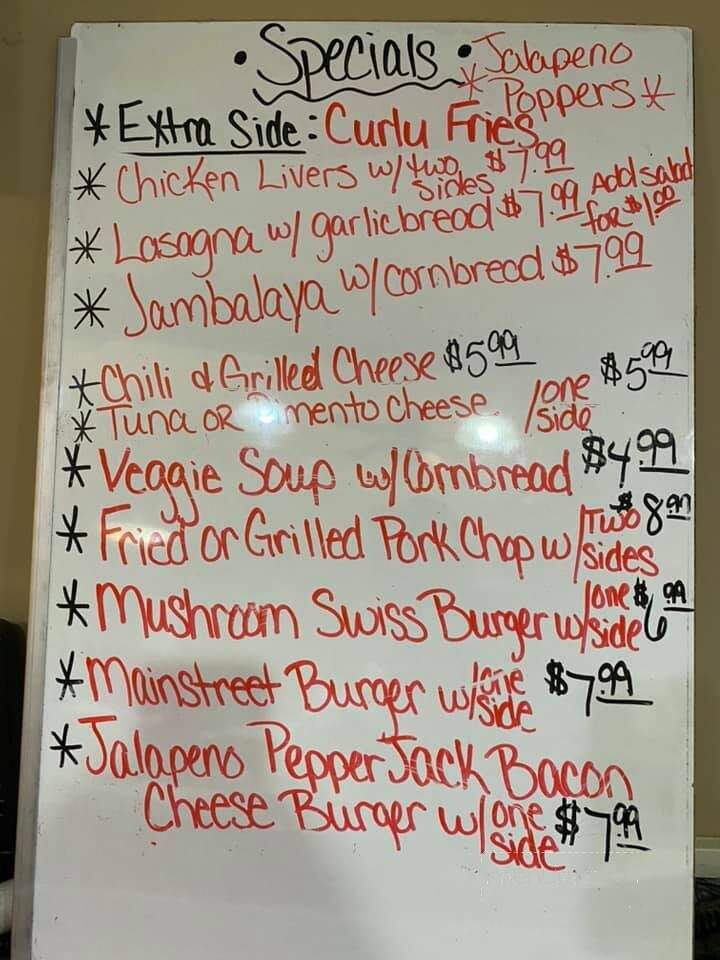 • Specials • Jalapeno
* Poppers *
* Extra Side: Curly Fries
* Chicken Livers w/ two sides $7.99
* Lasagna w/ garlicbread $7.99 Add salad for $1.00
* Jambalaya w/ cornbread $7.99
* Chili & Grilled Cheese $5.99
* Tuna OR Pimento Cheese /one side $5.99
* Veggie Soup w/ Cornbread $4.99
* Fried or Grilled Pork Chop w/ Two sides $8.99
* Mushroom Swiss Burger w/ one side $6.99
* Mainstreet Burger w/ one side $7.99
* Jalapeno Pepper Jack Bacon
Cheese Burger w/ one side $7.99